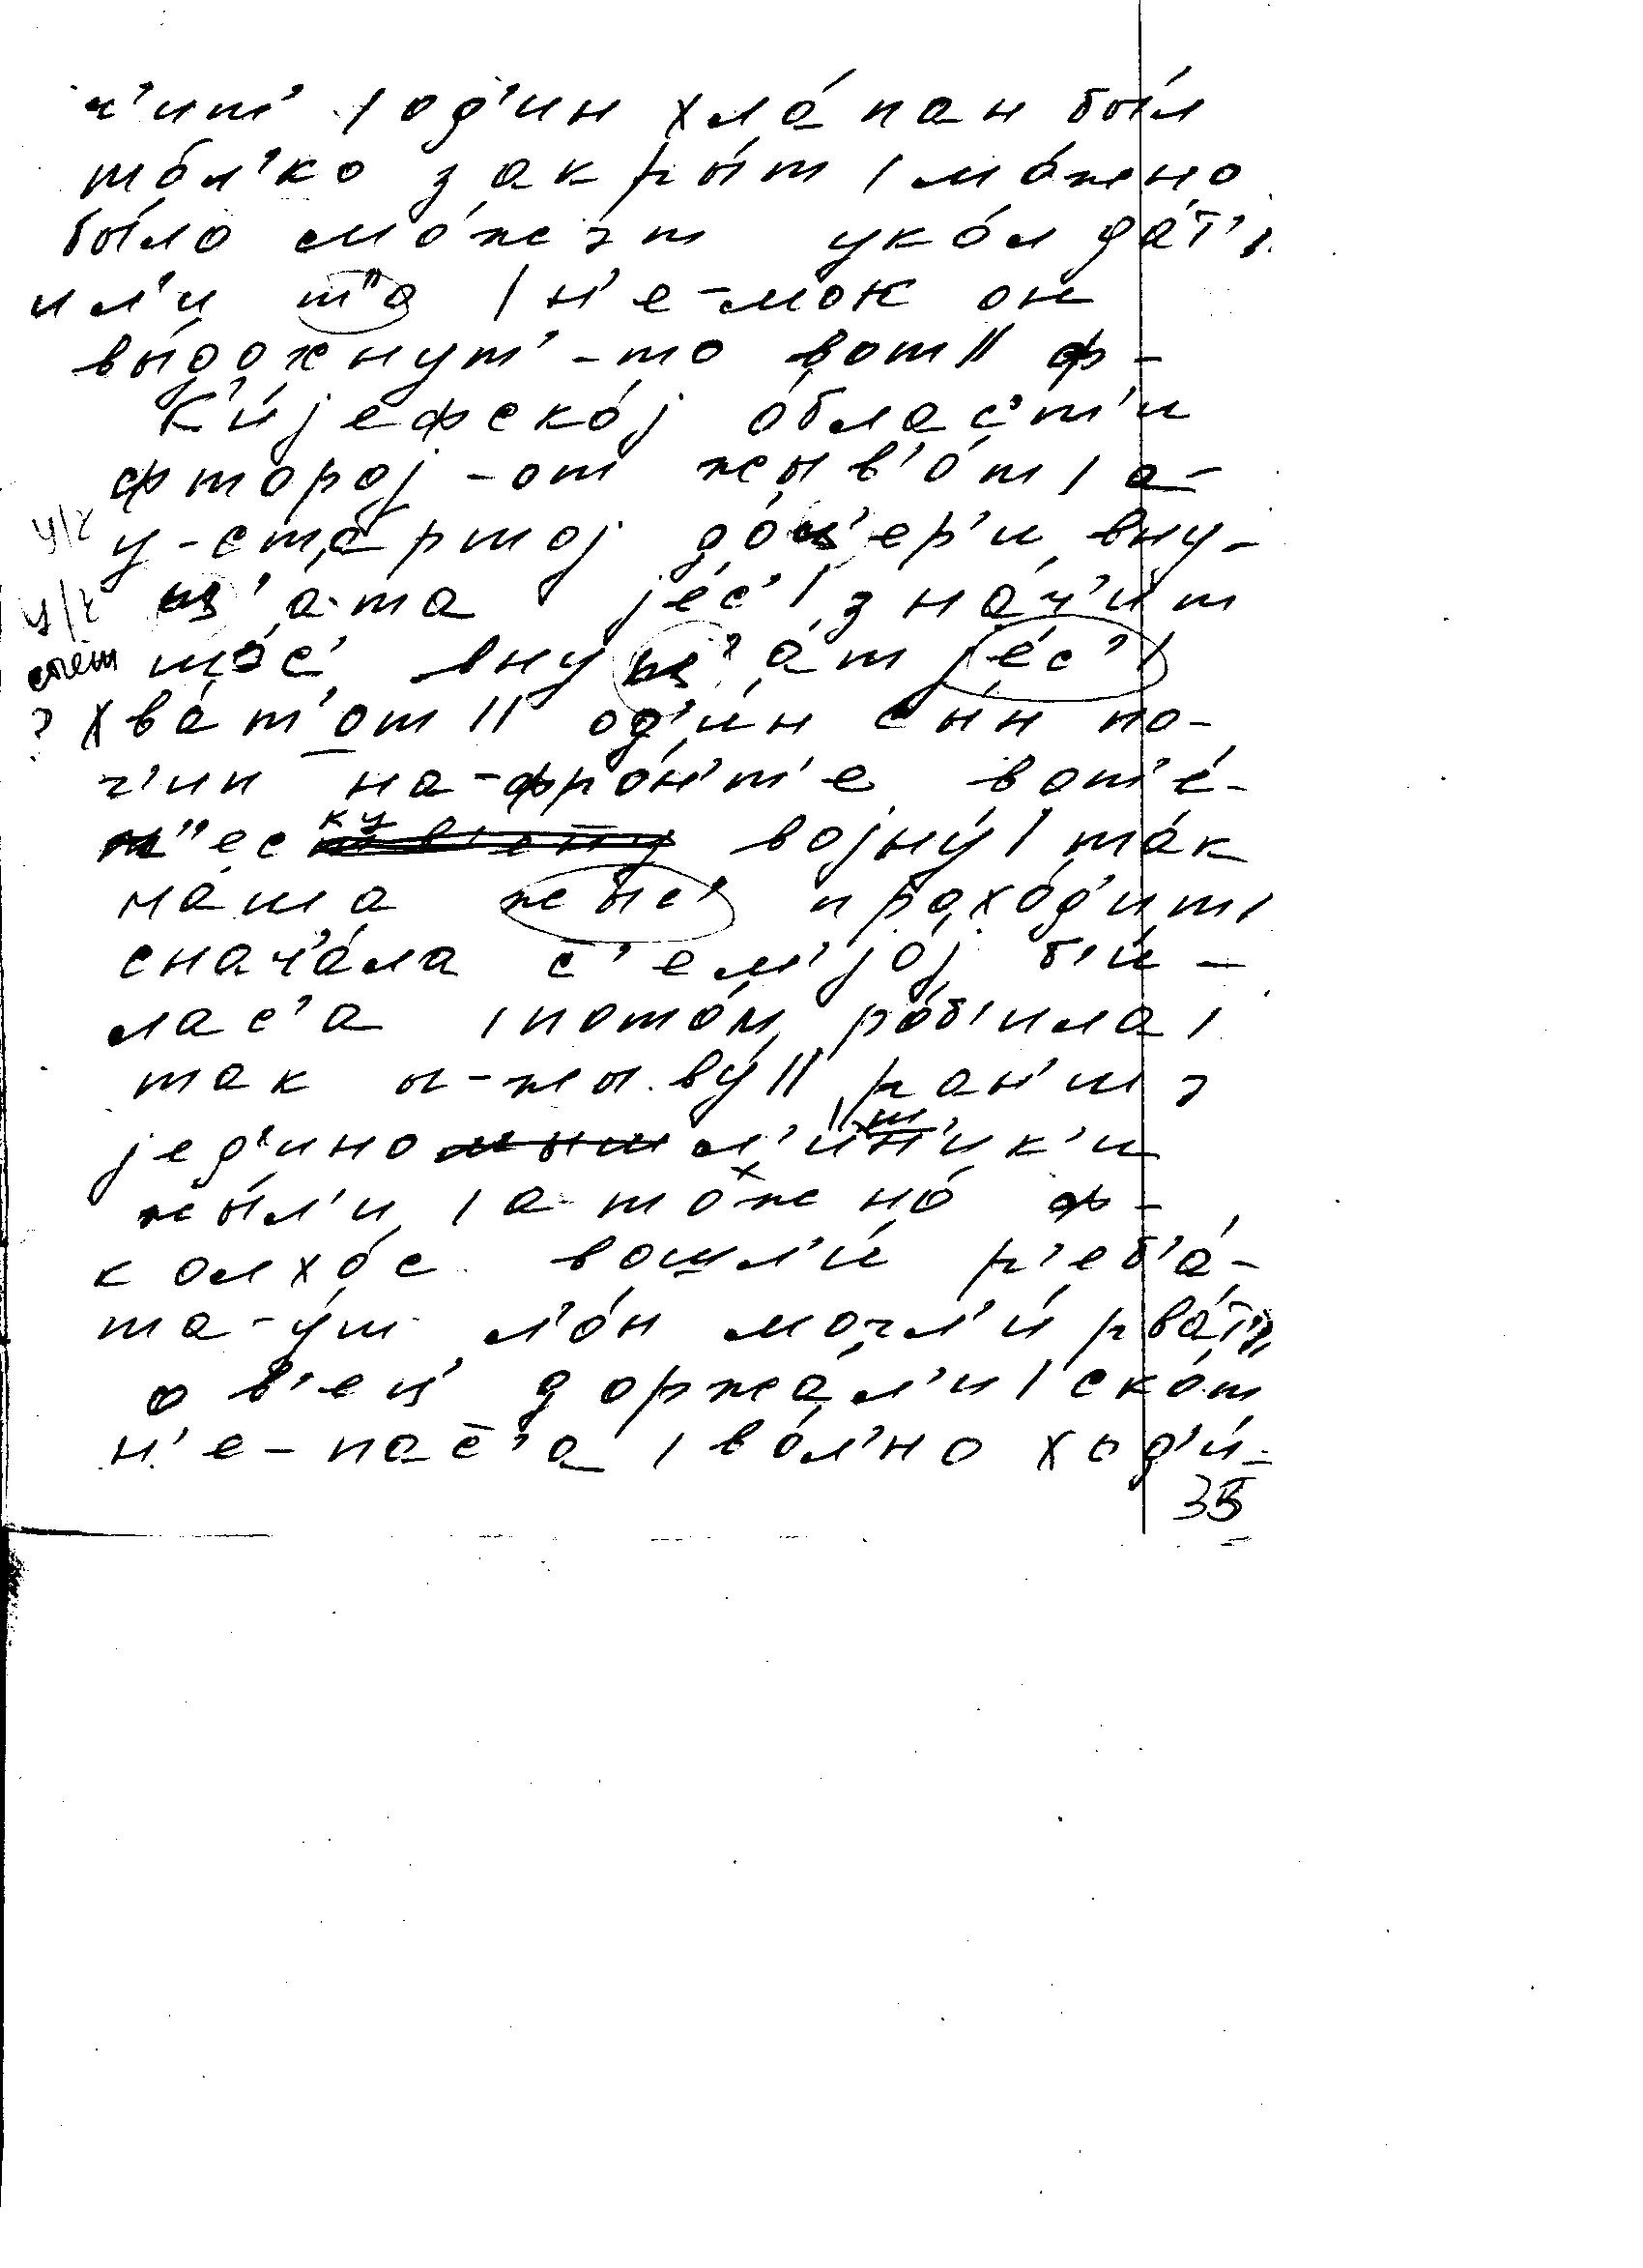 ч'ит' / од'ин хла́пан бы́л
то́л'ко закры́т / мо́жно
бы́ло мо́жэт уко́л да́т' /
ил'и т"а / н'е-мок он
вы́дохнут'-то вот // ф-
К'и́јефско́ј о́блас'т'и
фторој-от жыв'о́т / а-
у-ста́ртој до́ц'ер'и вну-
ц'ата јéс' / зна́ч'ит
шэс' внуц'а́т јéс' /
хва́т'от // од'и́н сын по-
г'ип на-фро́н'т'е вот'é-
ч"еску војну́ / та́к
на́ша жыс' прохо́д'ит /
снач'а́ла с'ем'јо́ј б'и́-
лас'а / пото́м ро́б'ила /
так ы-жыву́ // ран'шэ
јед'инол'и́ш'н'ик'и
жы́л'и / а тожно́ ф-
колхо́с вошл'и́ р'еб'а́-
та-у́ш л'о́н могл'и́ рва́т' //
ов'ец' доржа́л'и / ско́т
н'е-пас'а́ / во́л'но ход'и́-
35